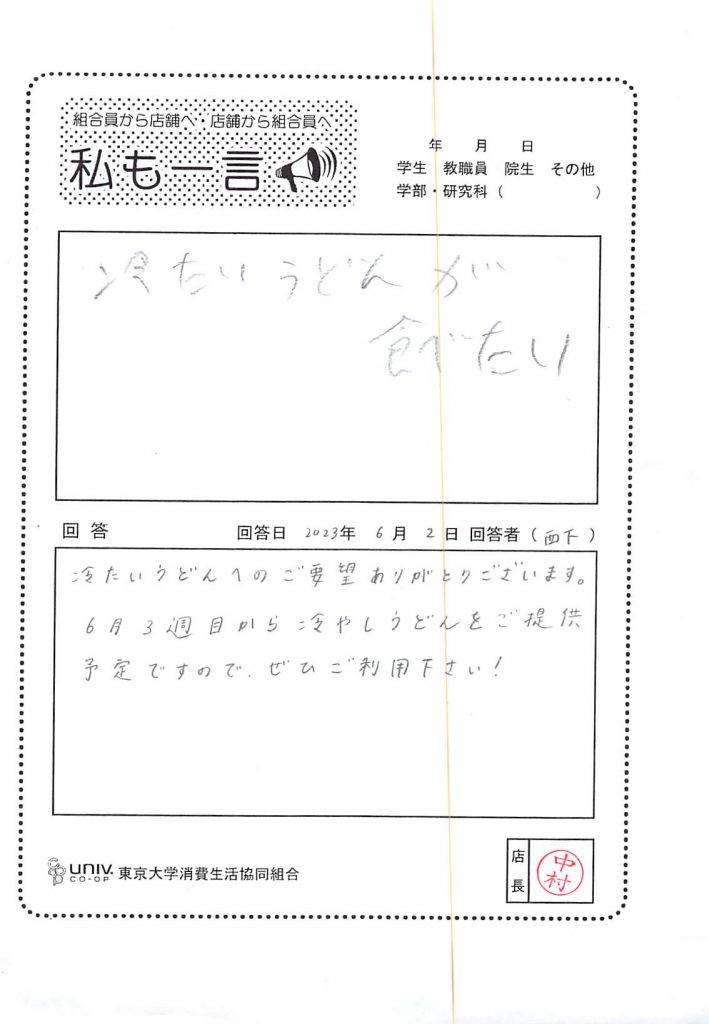 組合員から店舗へ・店舗から組合員へ
私も一言
年 月 日
学生 教職員 院生 その他
学部・研究科( )
冷たいうどんが
食べたい
回答 回答日 2023年 6月 2日 回答者(西下)
冷たいうどんへのご要望ありがとうございます。
6月3週目から冷やしうどんをご提供
予定ですので、ぜひご利用下さい!
UNIV.
CO-OP
東京大学消費生活協同組合
店長
中村